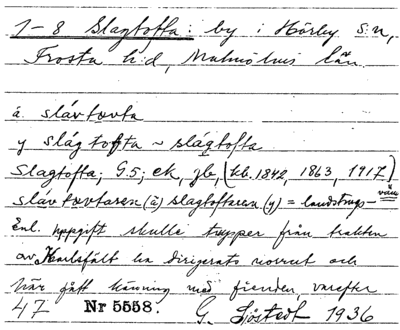 1-8 Slagtofta: by i Hörby s:n,
Frosta h:d, Malmöhus län.
ä. slávtovta
y slágtofta ~ slágtofta
Slagtofta; G.5; ek, jb, (kb. 1842, 1863, 1917)
slavtovtaren (ä) slagtoftaren (y) = landsvägs-
Enl. uppgift skulle trupper från trakten
av Karlsfält ha dirigerats norrut och
här fått känning med fienden, varefter
47 Nr 5558. G. Sjöstedt 1936